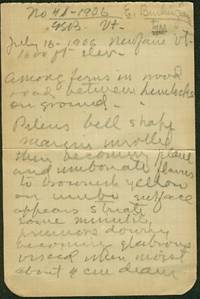 No 41-1906 E. Burlingham
Vt.
July 16-1906 Newfane Vt.
1600 ft elev.
Among ferns in wood
road between hemlocks
on ground.
Pileus bell shape
margin inrolled
then becoming plane
and umbonate
to brownish yellow
on umbo surface
appears striate
some minutely
downy
becoming glabrous
viscid when moist
about 4 cm diam